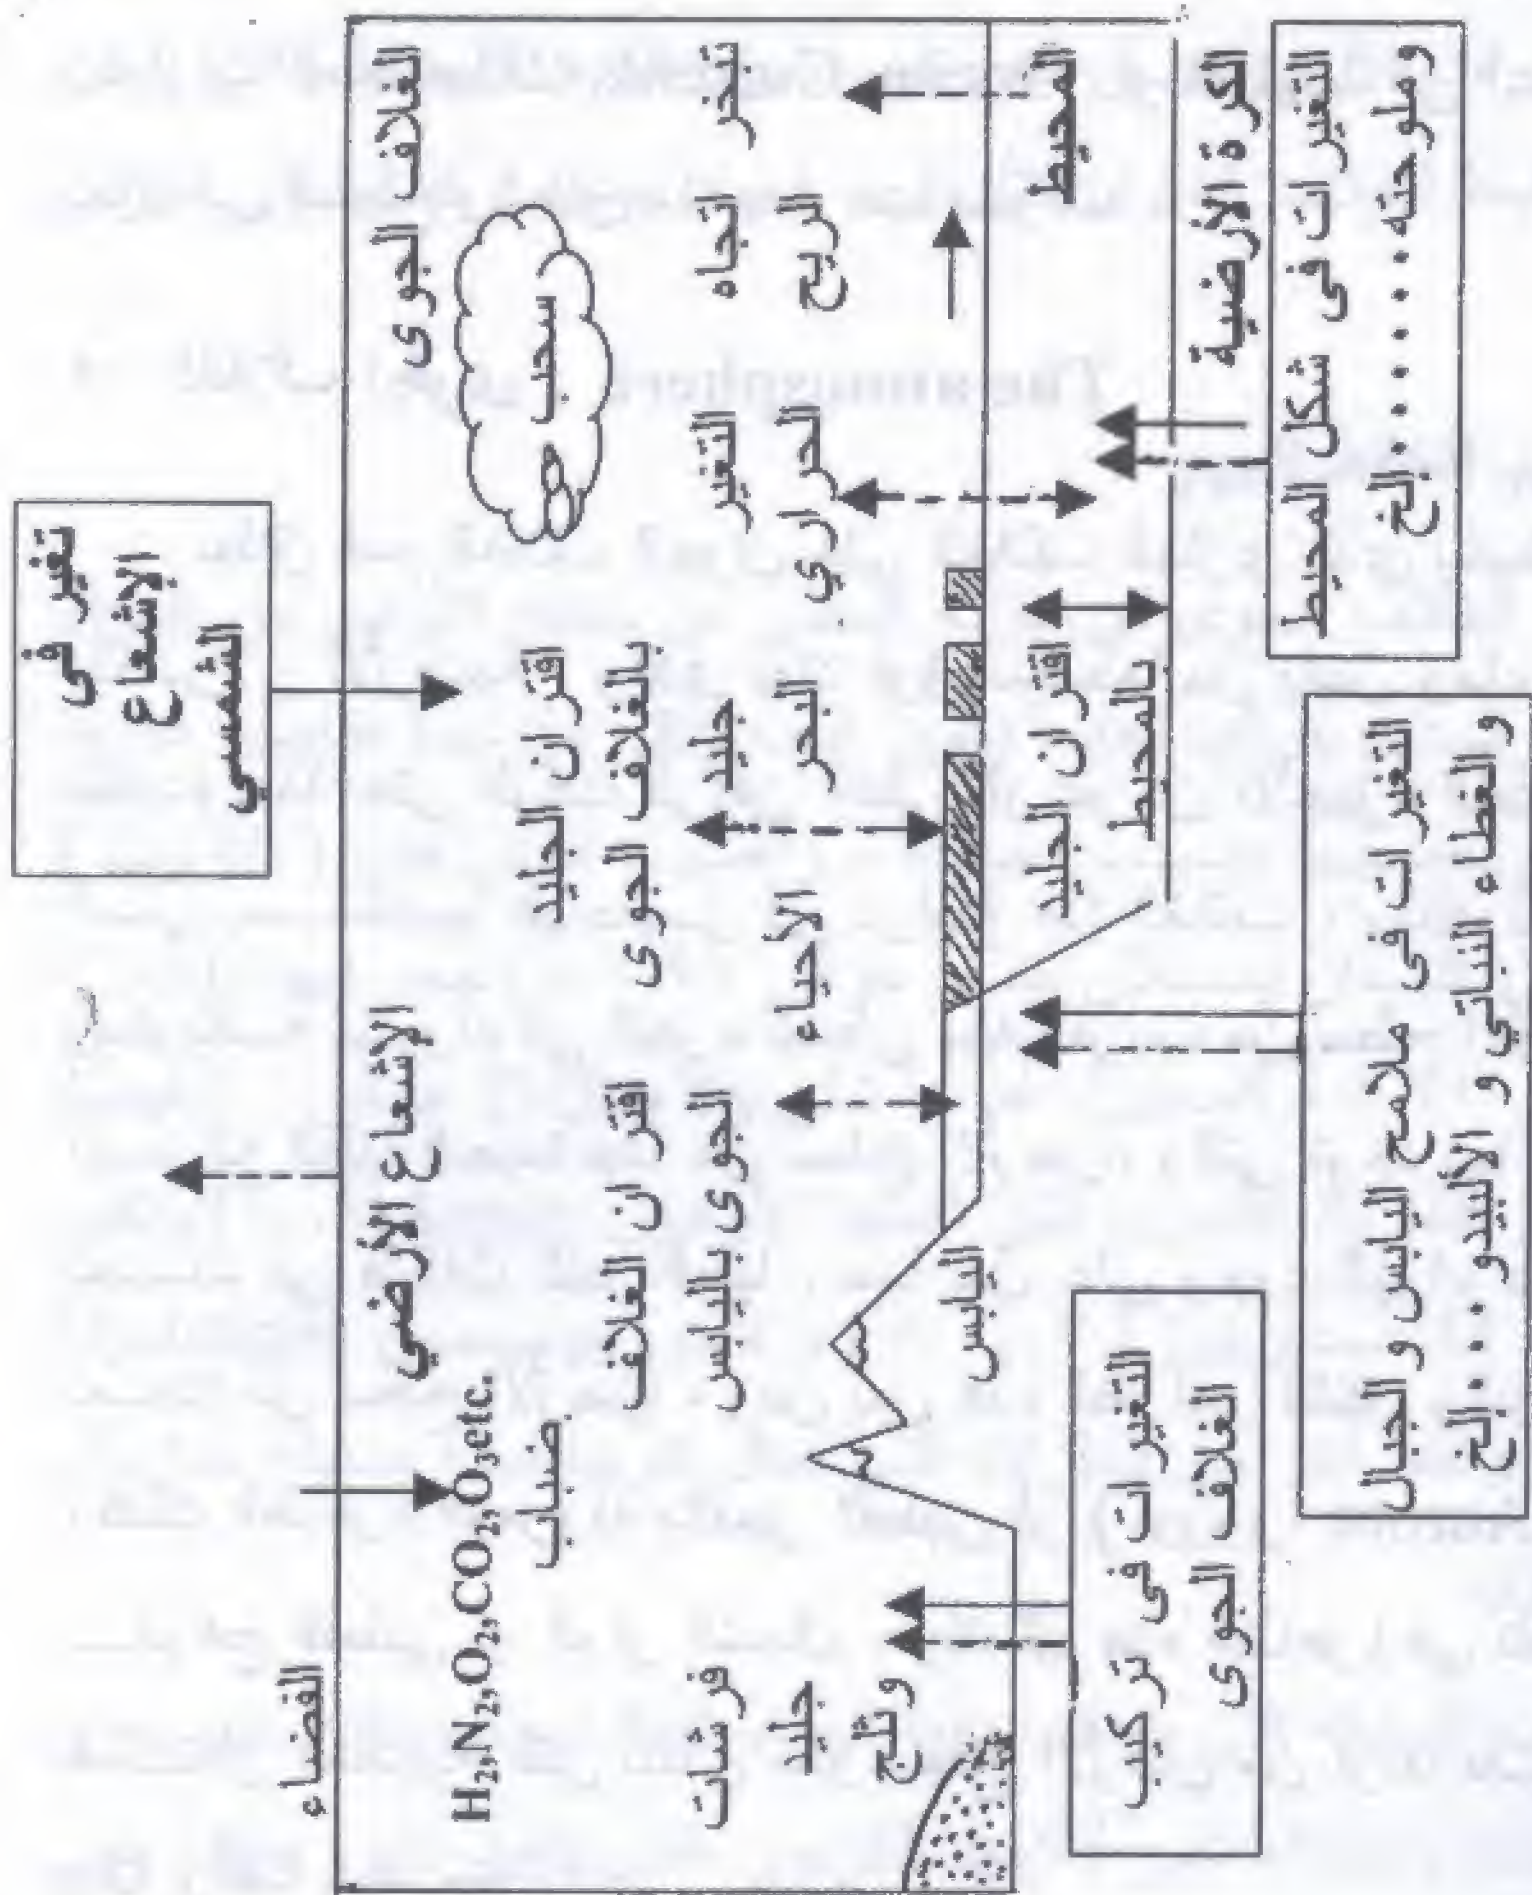 تغير في
الإشعاع
الشمسي
الفضاء
الإشعاع الأرضي
الغلاف الجوى
H2,N2,O2,CO2,O3etc.
ضباب
سحب
اقتران الجليد
بالغلاف الجوى
اقتران الغلاف
الجوى باليابس
فرشات
جليد
وثلج
الأحياء
جليد
البحر
التغير
الحراري
اتجاه
الريح
تبخر
اليابس
اقتران الجليد
بالمحيط
المحيط
الكرة الأرضية
التغيرات فى تركيب
الغلاف الجوى
التغيرات فى ملامح اليابس و الجبال
و الغطاء النباتي و الألبيدو ...إلخ
التغيرات فى شكل المحيط
وملوحته .......إلخ